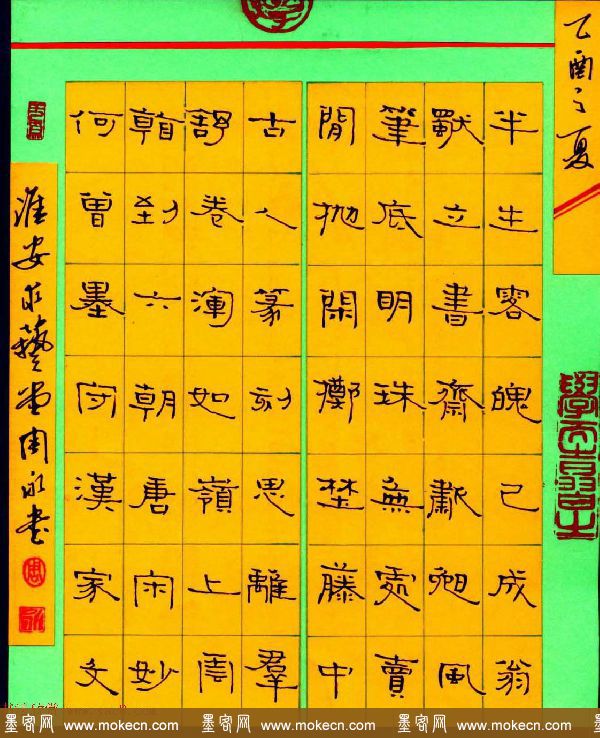 乙酉之夏
半生客魄已成翁
立書齋風
筆底明珠無處賣
閒拋閑擲埜藤中
古人篆刻思離羣
舒卷渾如嶺上雲
到六朝唐宋妙
何曾墨守漢家文
淮安求藝堂周永書
周
永
墨客网 www.mokecn.com 墨客网 www.mokecn.com 墨客网 www.mokecn.com